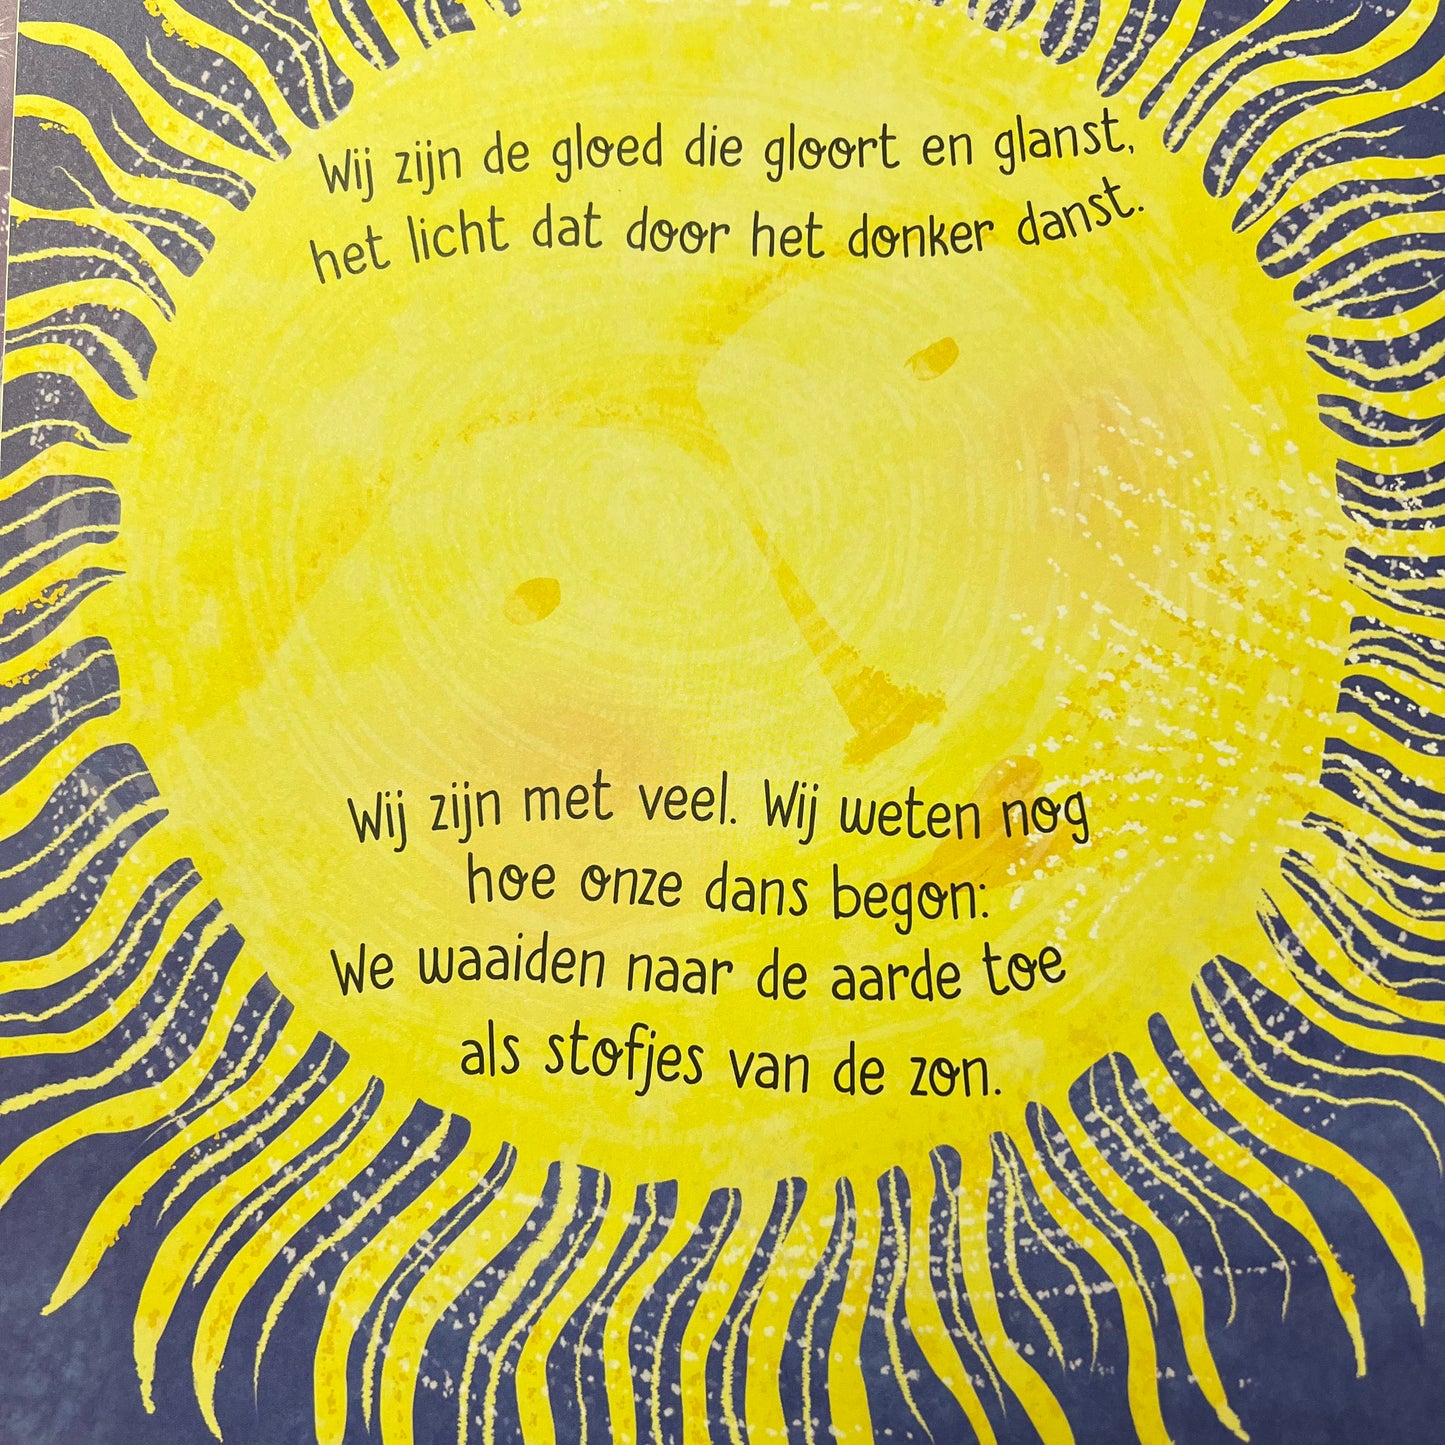 Wij zijn de gloed die gloort en glanst,
het licht dat door het donker danst.
Wij zijn met veel. Wij weten nog
hoe onze dans begon:
We waaiden naar de aarde toe
als stofjes van de zon.